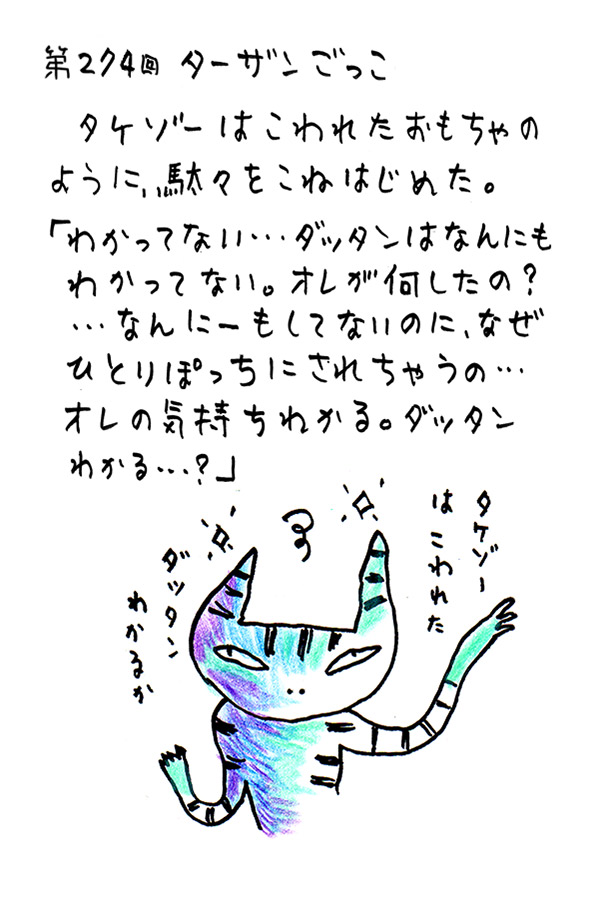 第274回 ターザンごっこ
タケゾーはこわれたおもちゃの
ように、駄々をこねはじめた。
「わかってない…ダッタンはなんにも
わかってない。オレが何したの?
…なんにーもしてないのに、なぜ
ひとりぽっちにされちゃうの…
オレの気持ちわかる。ダッタン
わかる…?」
タケゾー
はこわれた
ダッタン
わかるか